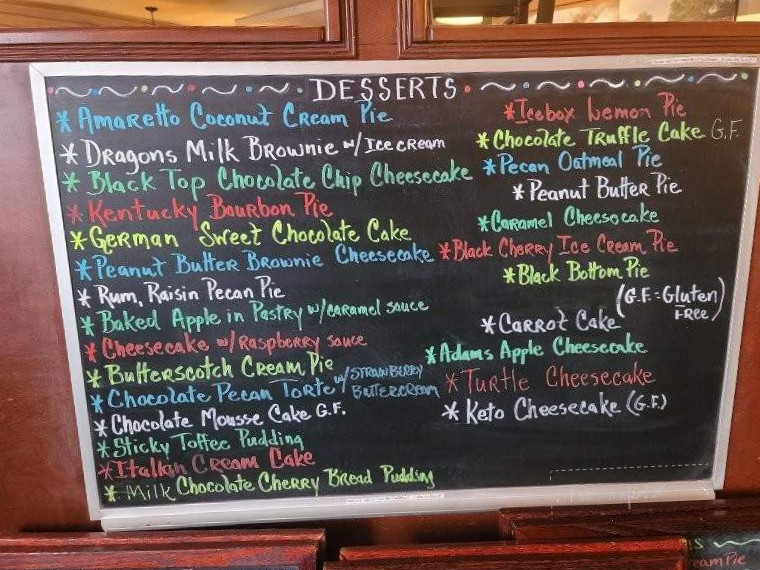 DESSERTS
* Amaretto Coconut Cream Pie
* Dragons Milk Brownie w/ Ice cream
* Black Top Chocolate Chip Cheesecake
* Kentucky Bourbon Pie
* German Sweet Chocolate Cake
* Peanut Butter Brownie Cheesecake
* Rum, Raisin Pecan Pie
* Baked Apple in Pastry w/caramel sauce
* Cheesecake w/ Raspberry sauce
* Butterscotch Cream Pie
* Chocolate Pecan Torte w/ STRAWBERRY
BUTTERCREAM
* Chocolate Mousse Cake G.F.
* Sticky Toffee Pudding
* Italian Cream Cake
* Milk Chocolate Cherry Bread Pudding
* Icebox Lemon Pie
* Chocolate Truffle Cake G.F.
* Pecan Oatmeal Pie
* Peanut Butter Pie
* Caramel Cheesecake
* Black Cherry Ice Cream Pie
* Black Bottom Pie
(G.F. = Gluten
FREE)
* Carrot Cake
* Adams Apple Cheesecake
* Turtle Cheesecake
* Keto Cheesecake (G.F.)
eam Pie